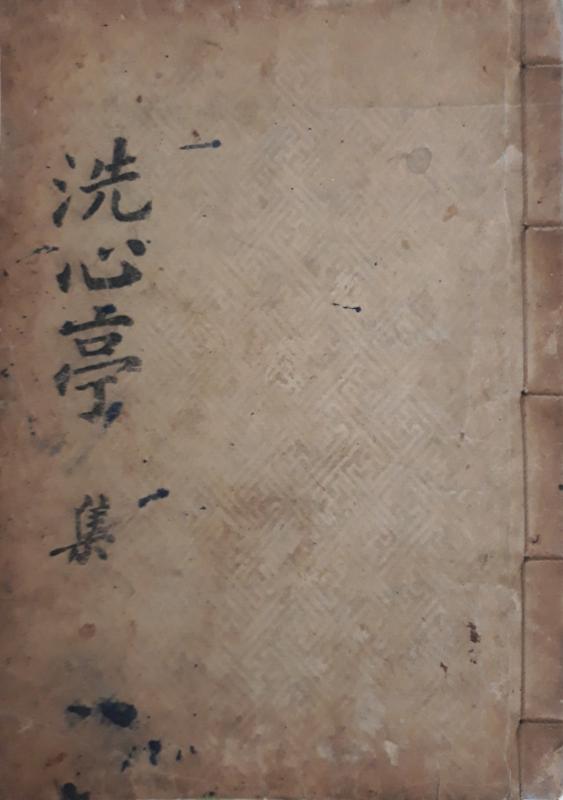 洗心亭 集